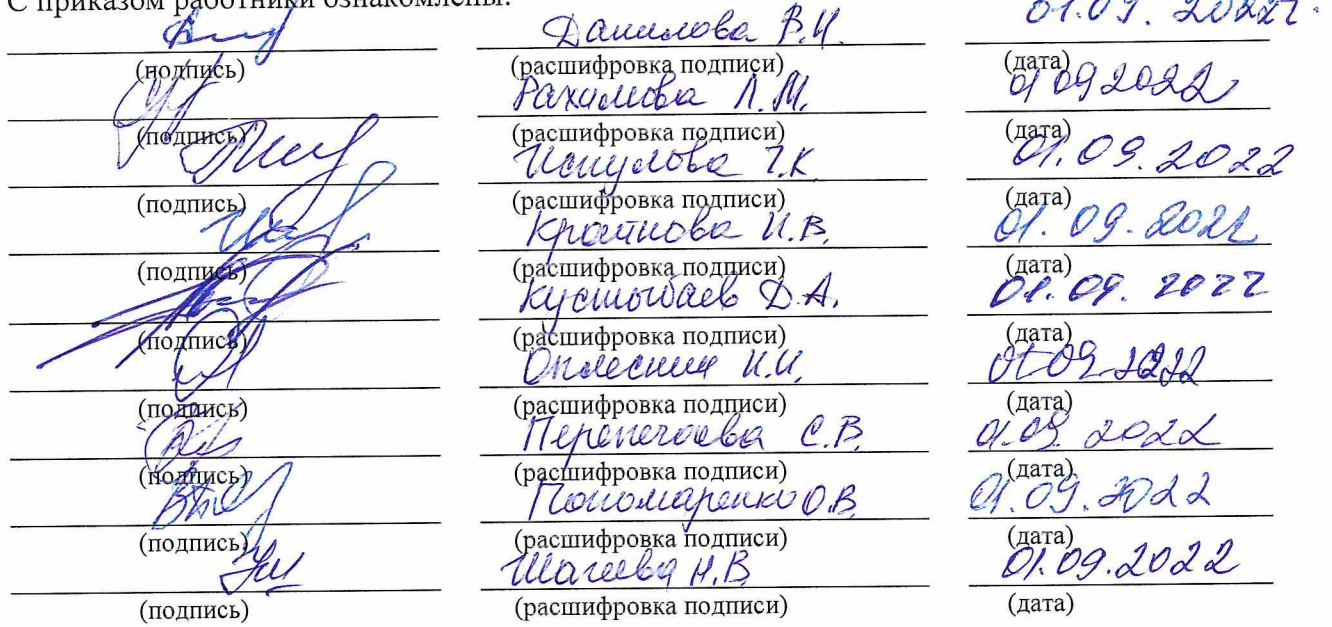 С приказом работники ознакомлены:
Данилова В.И. 01.09.2022г.
(подпись) (расшифровка подписи) (дата)
Рахимова Л.М. 01 09 2022
(подпись) (расшифровка подписи) (дата)
Испулова Г.К. 01.09.2022
(подпись) (расшифровка подписи) (дата)
Кратнова И.В. 01.09.2022
(подпись) (расшифровка подписи) (дата)
Кустыбаев D.А. 01.09.2022
(подпись) (расшифровка подписи) (дата)
И.И. 01 09 2022
(подпись) (расшифровка подписи) (дата)
С.В. 01.09.2022
(подпись) (расшифровка подписи) (дата)
Пономаренко О.В. 01.09.2022
(подпись) (расшифровка подписи) (дата)
Н.В. 01.09.2022
(подпись) (расшифровка подписи) (дата)